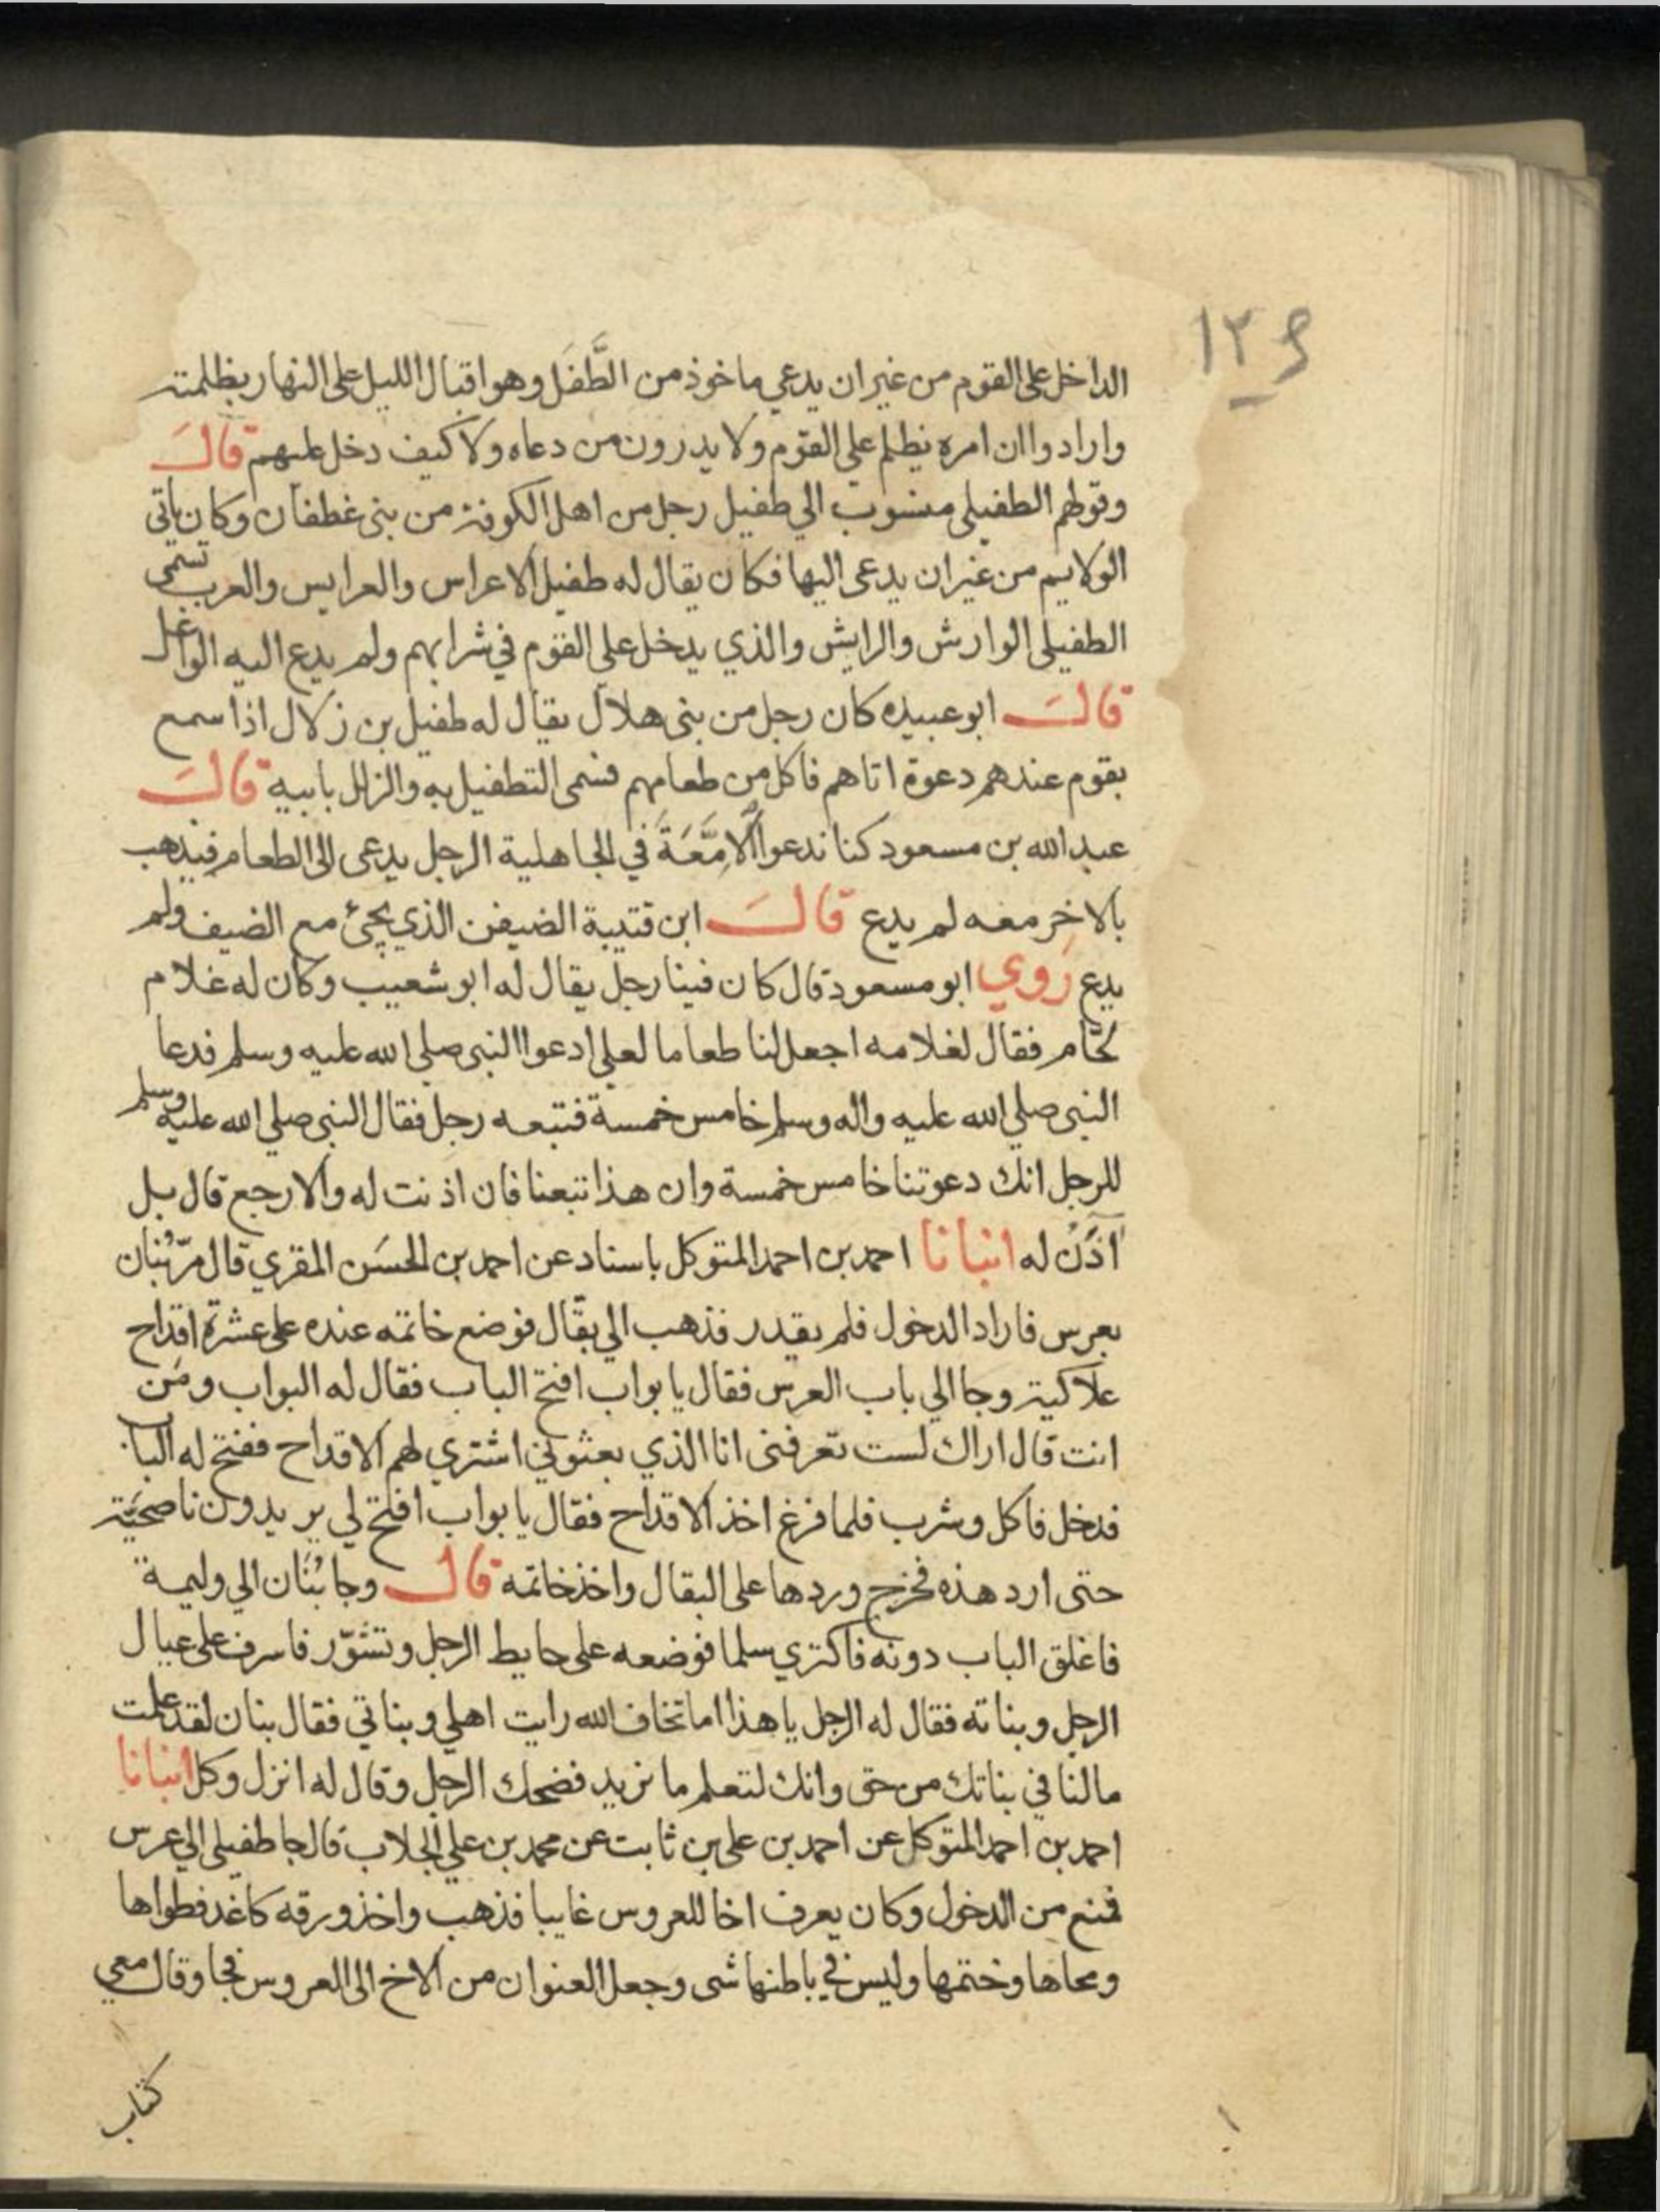 ١٢٩
الداخل على القوم من غيران يدعي ماخوذ من الطَّفَل وهو اقبال الليل على النهار بظلمته
وارادوا ان امره يظلم على القوم ولا يدرون من دعاه ولا كيف دخل عليهم قالَ
وقولهم الطفيلى منسوب الي طفيل رجل من اهل الكوفة من بنى غطفان وكان ياتى
الولايم من غيران يدعى اليها فكان يقال له طفيل الاعراس والعرايس والعرب تسمى
الطفيلى الوارش والرايش والذي يدخل على القوم في شرابهم ولم يدع اليه الواغل
قالَ ابو عبيده كان رجل من بنى هلال يقال له طفيل بن زلال اذا سمع
بقوم عندهم دعوة اتاهم فاكل من طعامهم فسمى التطفيل به والزلل بابيه قالَ
عبد الله بن مسعود كنا ندعوا الامَّعَةَ في الجاهلية الرجل يدعى الى الطعام فيذهب
بالاخر معه لم يدع قالَ ابن قتيبة الضيفن الذي يجئ مع الضيف ولم
يدع رَوي ابو مسعود قال كان فينا رجل يقال له ابو شعيب وكان له غلام
لحّام فقال لغلامه اجعل لنا طعاما لعلي ادعوا النبى صلي الله عليه وسلم فدعا
النبى صلي الله عليه واله وسلم خامس خمسة فتبعه رجل فقال النبى صلي الله عليه وسلم
للرجل انك دعوتنا خامس خمسة وان هذا تبعنا فان اذنت له والا رجع قال بل
آذَن له انبانا احمد بن احمد المتوكل باسناد عن احمد بن الحسَن المقري قال مرّ بُنان
بعرس فاراد الدخول فلم يقدر فذهب الي بقّال فوضع خاتمه عنده على عشرة اقداح
علاكية وجا الي باب العرس فقال يا بواب افتح الباب فقال له البواب ومَن
انت قال اراك لست تعرفنى انا الذي بعثوني اشتري لهم الاقداح ففتح له الباب
فدخل فاكل وشرب فلما فرغ اخذ الاقداح فقال يا بواب افتح لي يريدون ناصحيّة
حتى ارد هذه فخرج وردها على البقال واخذ خاتمه قالَ وجا بُنَان الي وليمة
فاغلق الباب دونه فاكتري سلما فوضعه على حايط الرجل وتشوّر فاسرف على عيال
الرجل وبناته فقال له الرجل يا هذا اما تخاف الله رايت اهلي وبناتي فقال بنان لقد علمت
مالنا في بناتك من حق وانك لتعلم ما نريد فضحك الرجل وقال له انزل وكل انبانا
احمد بن احمد المتوكل عن احمد بن على بن ثابت عن محمد بن علي الجلاب قال جا طفيلى الي عرس
فمنع من الدخول وكان يعرف اخا للعروس غايبا فذهب واخذ ورقه كاغد فطواها
ومحاها وختمها وليس في باطنها شى وجعل العنوان من الاخ الى العروس فجا وقال معي
كتاب